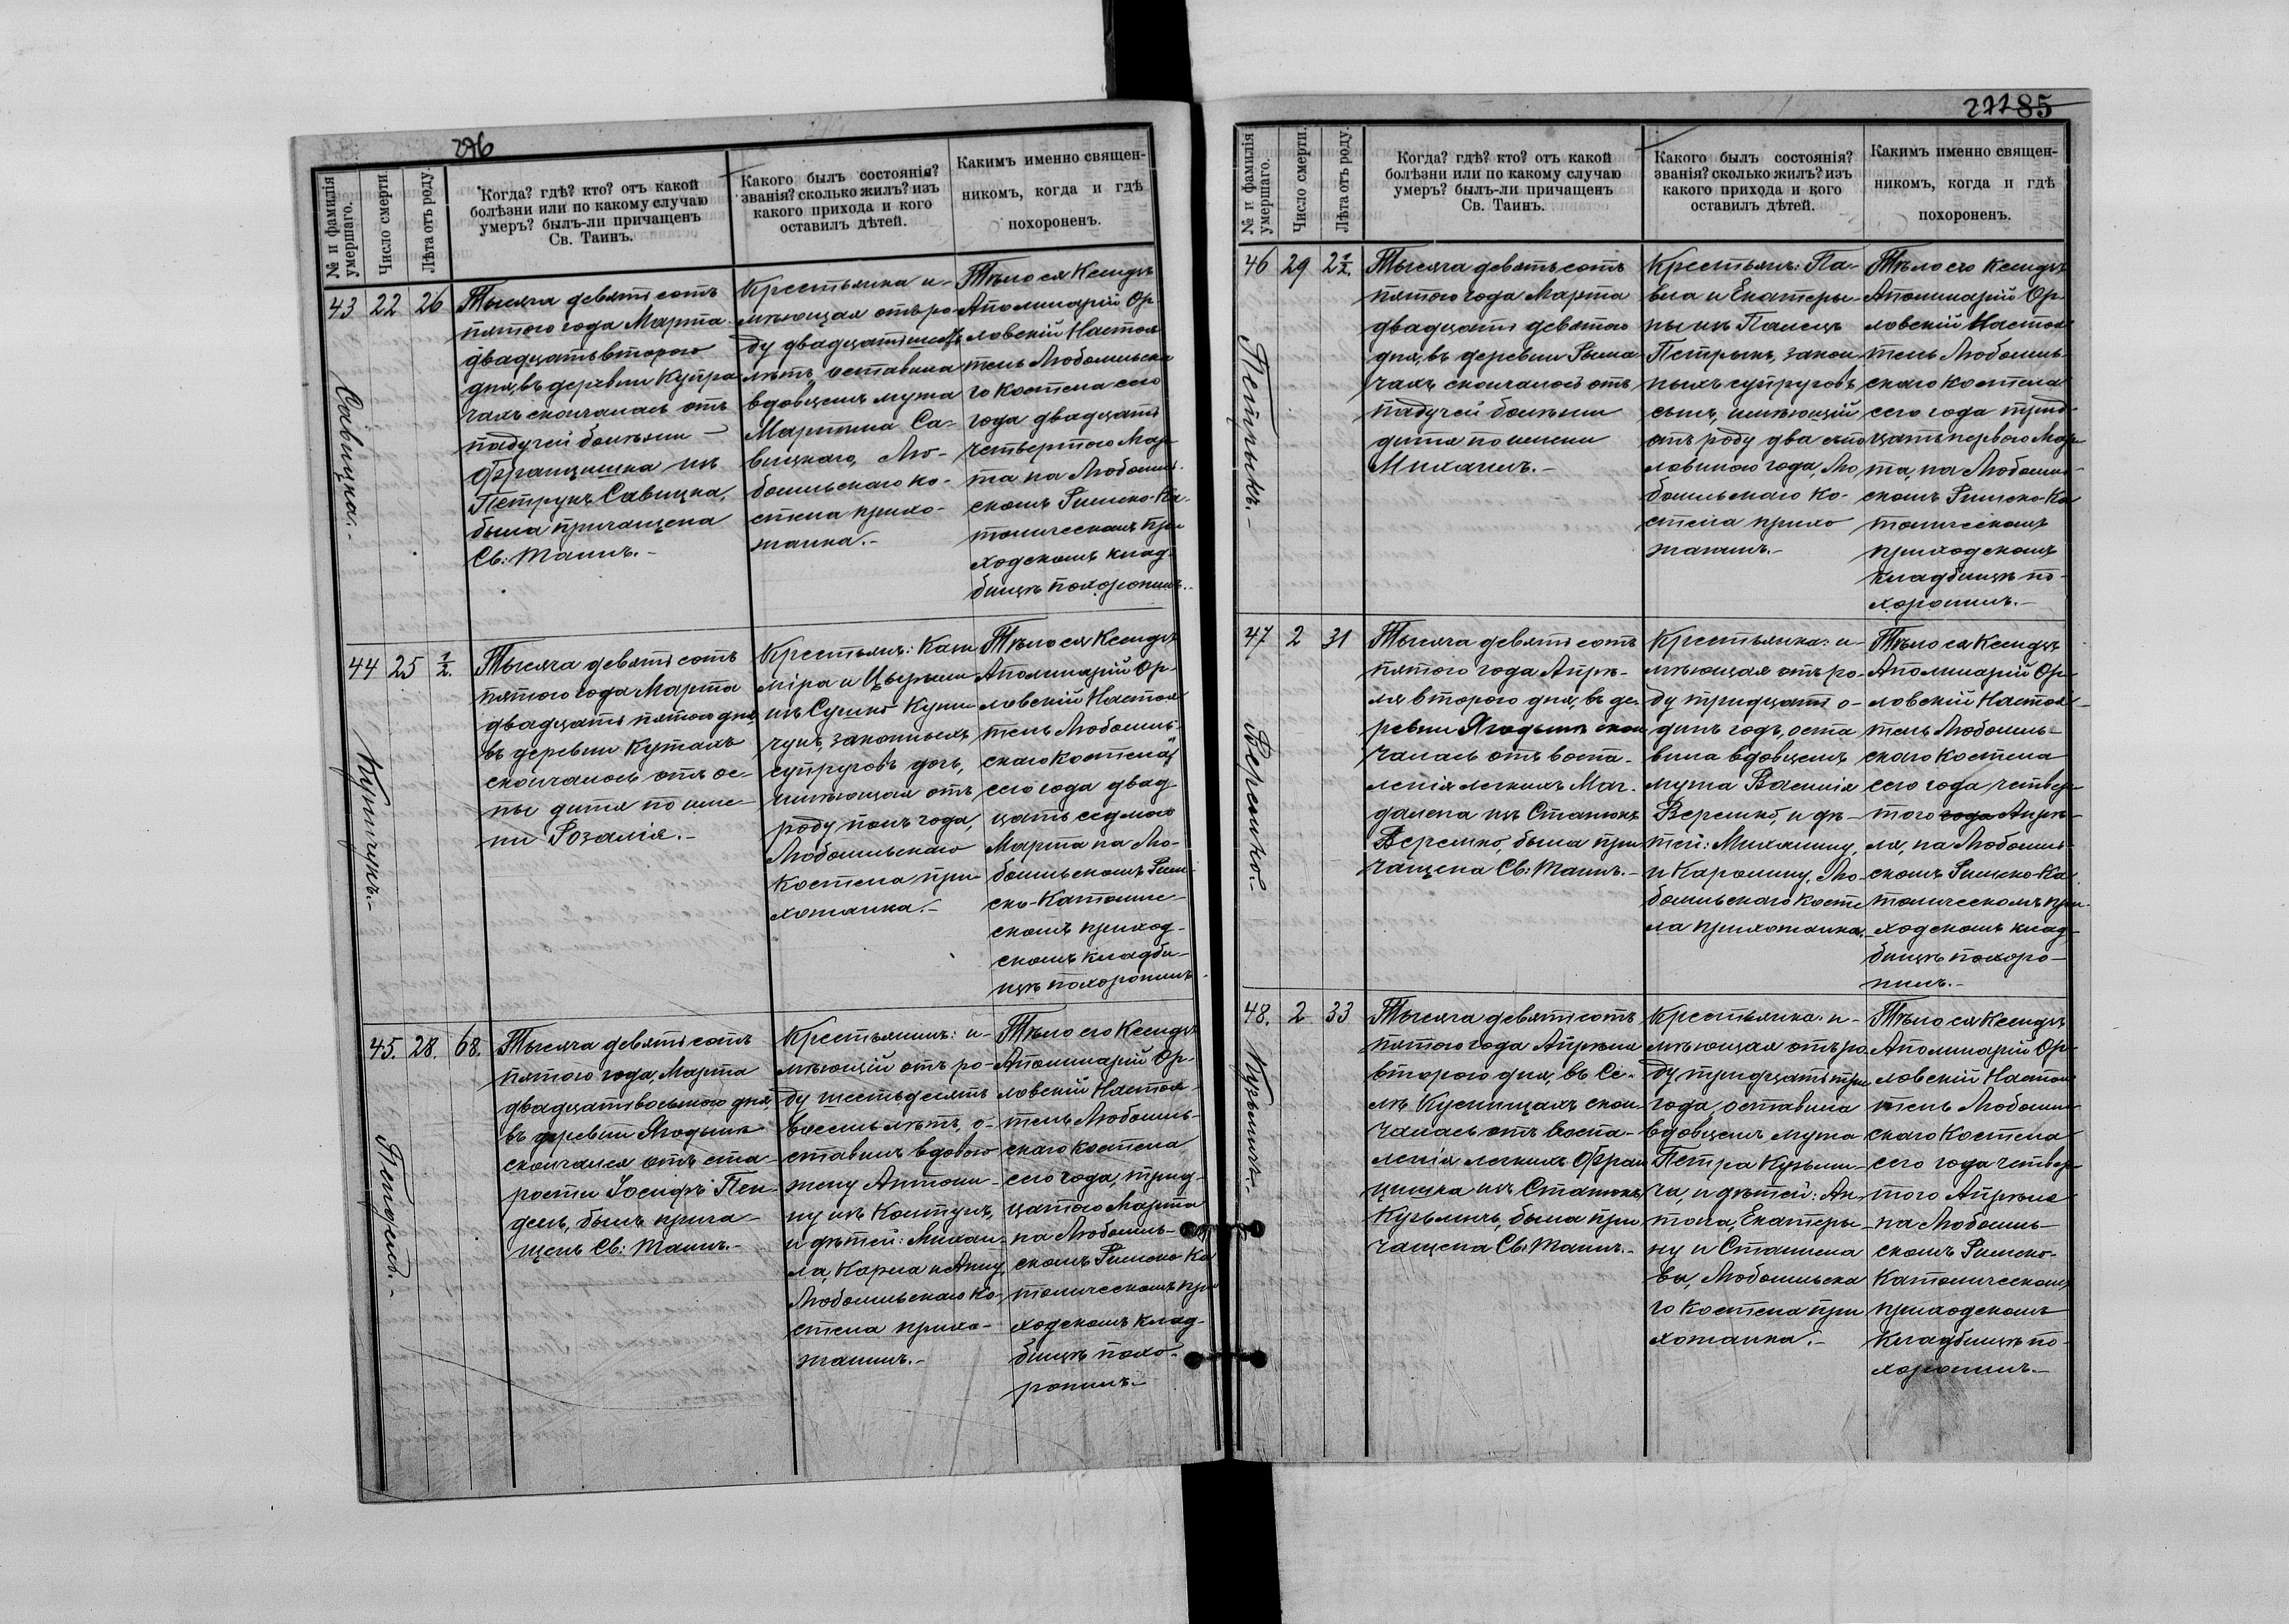 276
№ и фамилія
умершаго.
Число смерти.
Лѣта отъ роду.
Когда? гдѣ? кто? отъ какой
болѣзни или по какому случаю
умеръ? былъ-ли причащенъ
Св. Таинъ.
Какого былъ состоянія?
званія? сколько жилъ? изъ
какого прихода и кого
оставилъ дѣтей.
Какимъ именно священ-
никомъ, когда и гдѣ
похороненъ.
43
Савицка.-
22
26
Тысяча девятьсотъ
пятого года Марта
двадцать второго
дня, въ деревни Купра
чахъ скончалась отъ
падучей болѣзни
Францишка изъ
Петрукъ Савицка,
была причащена
Св: Таинъ.-
Крестьянка и-
мѣющая отъ ро-
ду двадцать шесть
лѣтъ, оставила
вдовцемъ мужа
Мартина Са-
вицкаго, Лю-
бошльскаго ко-
стела прихо-
жанка.-
Тѣло ея Ксендзъ
Аполинарій Ор-
ловскій Настоя
тель Любошльска
го костела сего
года двадцать
четвертого Мар-
та на Любошль-
скомъ Римско-Ка-
толическомъ при
ходскомъ клад-
бищѣ похоронилъ.-
44
25
½.
Тысяча девятьсотъ
пятого года Марта
двадцать пятого дня
въ деревни Кутахъ
скончалось отъ ос-
пы дитя по име-
ни Розалія.-
Крестьянъ: Кази
міра и Цверыи
изъ Сушко Куни
чукъ, законныхъ
супруговъ дочь,
имѣющая отъ
роду полъ года,
Любошльскаго
костела при-
хожанка.-
Тѣло ея Ксендзъ
Аполинарій Ор-
ловскій Настоя
тель Любошль-
скаго костела
сего года двад-
цать седмого
Марта на Лю-
бошльскомъ Рим-
ско-Католиче-
скомъ приход-
скомъ кладби-
щѣ похоронилъ.
45.
28.
68.
Тысяча девятьсотъ
пятого года, Марта
двадцать восьмого дня,
въ деревни Ягодынѣ
скончался отъ ста-
рости Іосифъ Пен-
дель, былъ прича-
щенъ Св: Таинъ.-
Крестьянинъ: и-
мѣющій отъ ро-
ду шестьдесятъ
восемь лѣтъ, о-
ставилъ вдовою
жену Антони-
ну изъ Контукъ,
и дѣтей: Михаи-
ла, Карла и Анну,
Любошльскаго ко-
стела прихо-
жанинъ.-
Тѣло его Ксендзъ
Аполинарій Ор-
ловскій Настоя-
тель Любошль-
скаго костела
сего года, трид-
цатого Марта
на Любошль-
скомъ Римско Ка
толическомъ при
ходскомъ клад-
бищѣ похо-
ронилъ.-
85
№ и фамилія
умершаго.
Число смерти.
Лѣта отъ роду.
Когда? гдѣ? кто? отъ какой
болѣзни или по какому случаю
умеръ? былъ-ли причащенъ
Св. Таинъ.
Какого былъ состоянія?
званія? сколько жилъ? изъ
какого прихода и кого
оставилъ дѣтей.
Какимъ именно священ-
никомъ, когда и гдѣ
похороненъ.
46
Петрыкъ.-
29
2½.
Тысяча девятьсотъ
пятого года Марта
двадцать девятого
дня, въ деревни Рыма
чахъ скончалось отъ
падучей болѣзни
дитя по имени
Михаилъ.-
Крестьянъ: Па-
вла и Екатеры-
ны изъ Палецъ
Петрыкъ, закон
ныхъ супруговъ
сынъ, имѣющій
отъ роду два съпо
ловиною года, Лю
бошльскаго ко-
стела прихо
жанинъ.-
Тѣло его Ксендзъ
Аполинарій Ор-
ловскій Настоя
тель Любошль-
скаго костела
сего года трид-
цать первого Мар-
та, на Любошль-
скомъ Римско-Ка
толическомъ
приходскомъ
кладбищѣ по-
хоронилъ.-
47
Веремко.-
2
31
Тысяча девятьсотъ
пятого года Апрѣ-
ля второго дня, въ де-
ревни Ягодынѣ скон
чалась отъ воспа-
ленія легкихъ Маг-
далена изъ Статюкъ
Веремко, была при
чащена Св: Таинъ.-
Крестьянка: и-
мѣющая отъ ро-
ду тридцать о-
динъ годъ, оста
вила вдовцемъ
мужа Василія
Веремко, и дѣ-
тей: Михалину,
и Каролину, Лю-
бошльскаго косте
ла прихожанка.-
Тѣло ея Ксендзъ
Аполинарій Ор-
ловскій Настоя-
тель Любошль-
скаго костела
сего года четвер-
того года Апрѣ-
ля, на Любошль-
скомъ Римско-Ка
толическомъ при-
ходскомъ клад-
бищѣ похоро-
нилъ.-
48.
Кузьмичъ.-
2
33
Тысяча девятьсотъ
пятого года Апрѣля
второго дня, въ Се-
лѣ Кусницахъ скон
чалась отъ воспа-
ленія легкихъ Фран
цишка изъ Статюкъ
Кузьмичъ, была при
чащена Св: Таинъ.-
Крестьянка: и-
мѣющая отъ ро-
ду тридцать три
года, оставила
вдовцемъ мужа
Петра Кузьми-
ча, и дѣтей: Ан-
тона, Екатеры-
ну и Станисла
ва, Любошльска
го костела при
хожанка.-
Тѣло ея Ксендзъ
Аполинарій Ор-
ловскій Настоя
тель Любошль-
скаго костела
сего года четвер-
того Апрѣля
на Любошль-
скомъ Римско-
Католическомъ
приходскомъ
кладбищѣ по-
хоронилъ.-